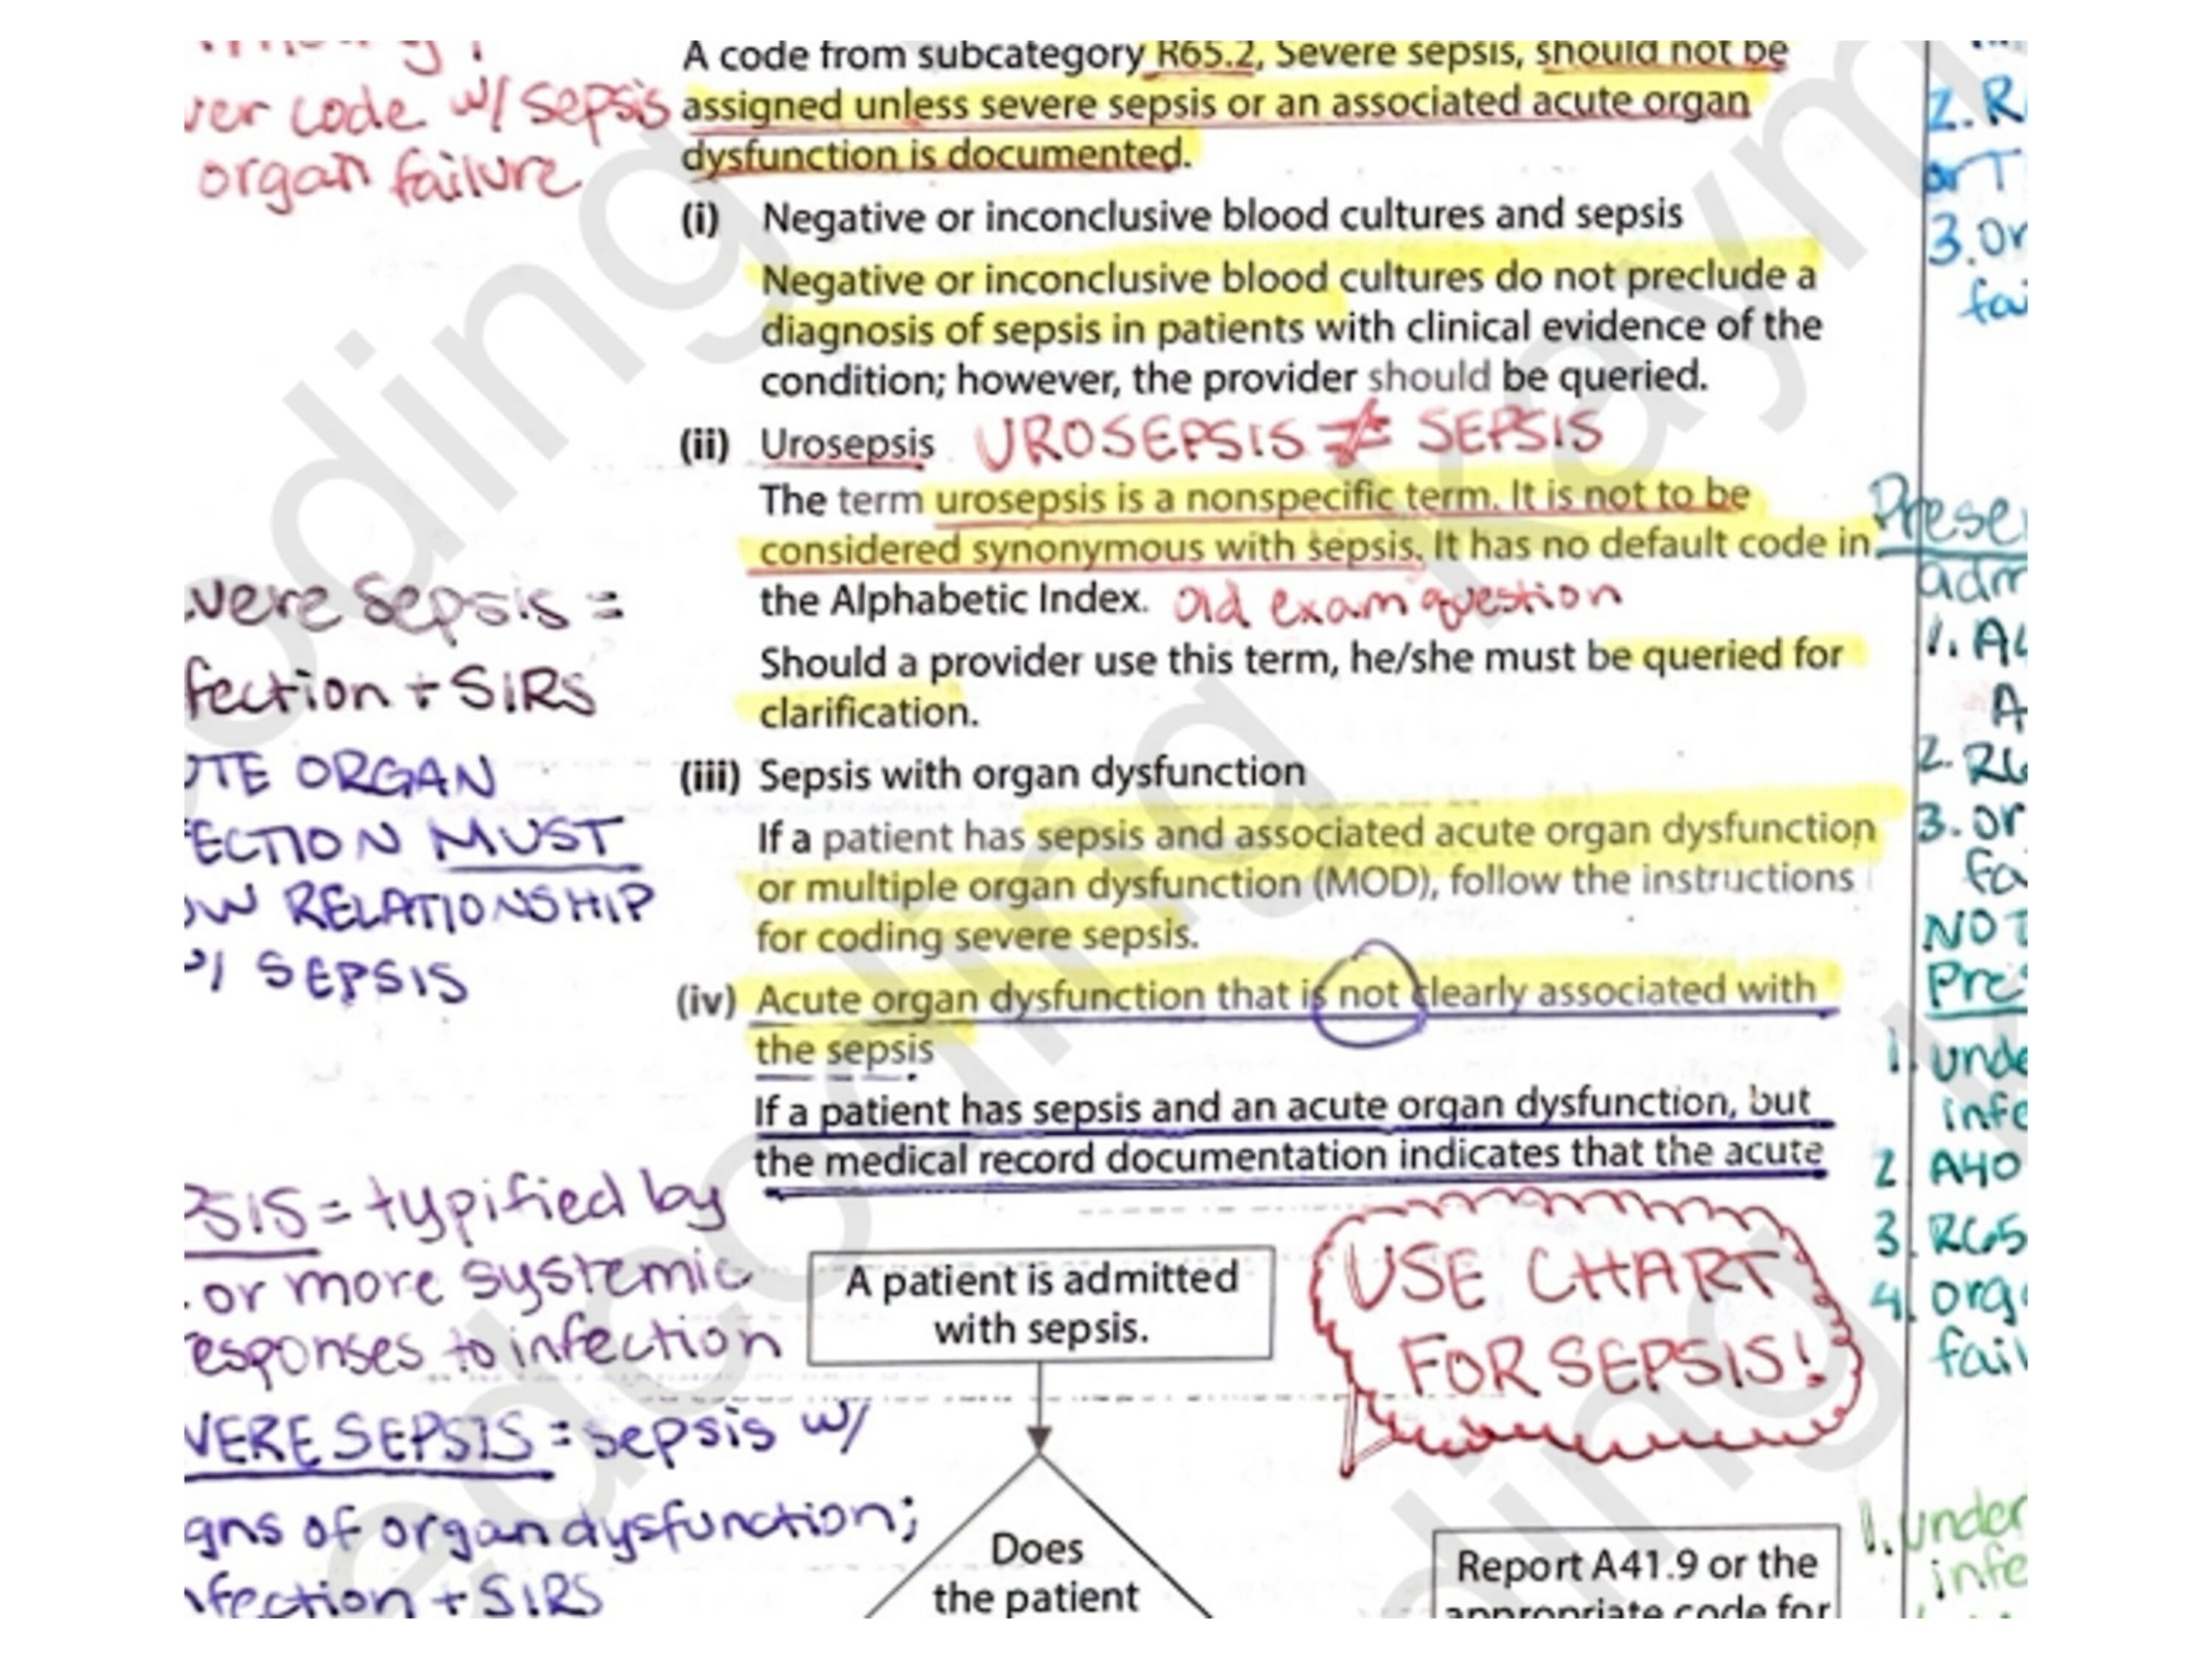 ver code w/ sepsis
organ failure
A code from subcategory R65.2, Severe sepsis, should not be
assigned unless severe sepsis or an associated acute organ
dysfunction is documented.
(i) Negative or inconclusive blood cultures and sepsis
Negative or inconclusive blood cultures do not preclude a
diagnosis of sepsis in patients with clinical evidence of the
condition; however, the provider should be queried.
(ii) Urosepsis UROSEPSIS ≠ SEPSIS
The term urosepsis is a nonspecific term. It is not to be
considered synonymous with sepsis. It has no default code in
the Alphabetic Index. old exam question
Should a provider use this term, he/she must be queried for
clarification.
(iii) Sepsis with organ dysfunction
If a patient has sepsis and associated acute organ dysfunction
or multiple organ dysfunction (MOD), follow the instructions
for coding severe sepsis.
(iv) Acute organ dysfunction that is not clearly associated with
the sepsis
If a patient has sepsis and an acute organ dysfunction, but
the medical record documentation indicates that the acute
vere Sepsis =
fection + SIRS
UTE ORGAN
ECTION MUST
OW RELATIONSHIP
W/ SEPSIS
PSIS = typified by
. or more systemic
esponses to infection
VERE SEPSIS = sepsis w/
gns of organ dysfunction;
nfection + SIRS
A patient is admitted
with sepsis.
USE CHART
FOR SEPSIS!
Does
the patient
Report A41.9 or the
appropriate code for
2. R
or T
3. or
fai
Prese
adm
1. A
A
2. R6
3. or
fa
NOT
Pres
1. unde
info
2 A40
3. R65
4. orga
fail
1. under
infe